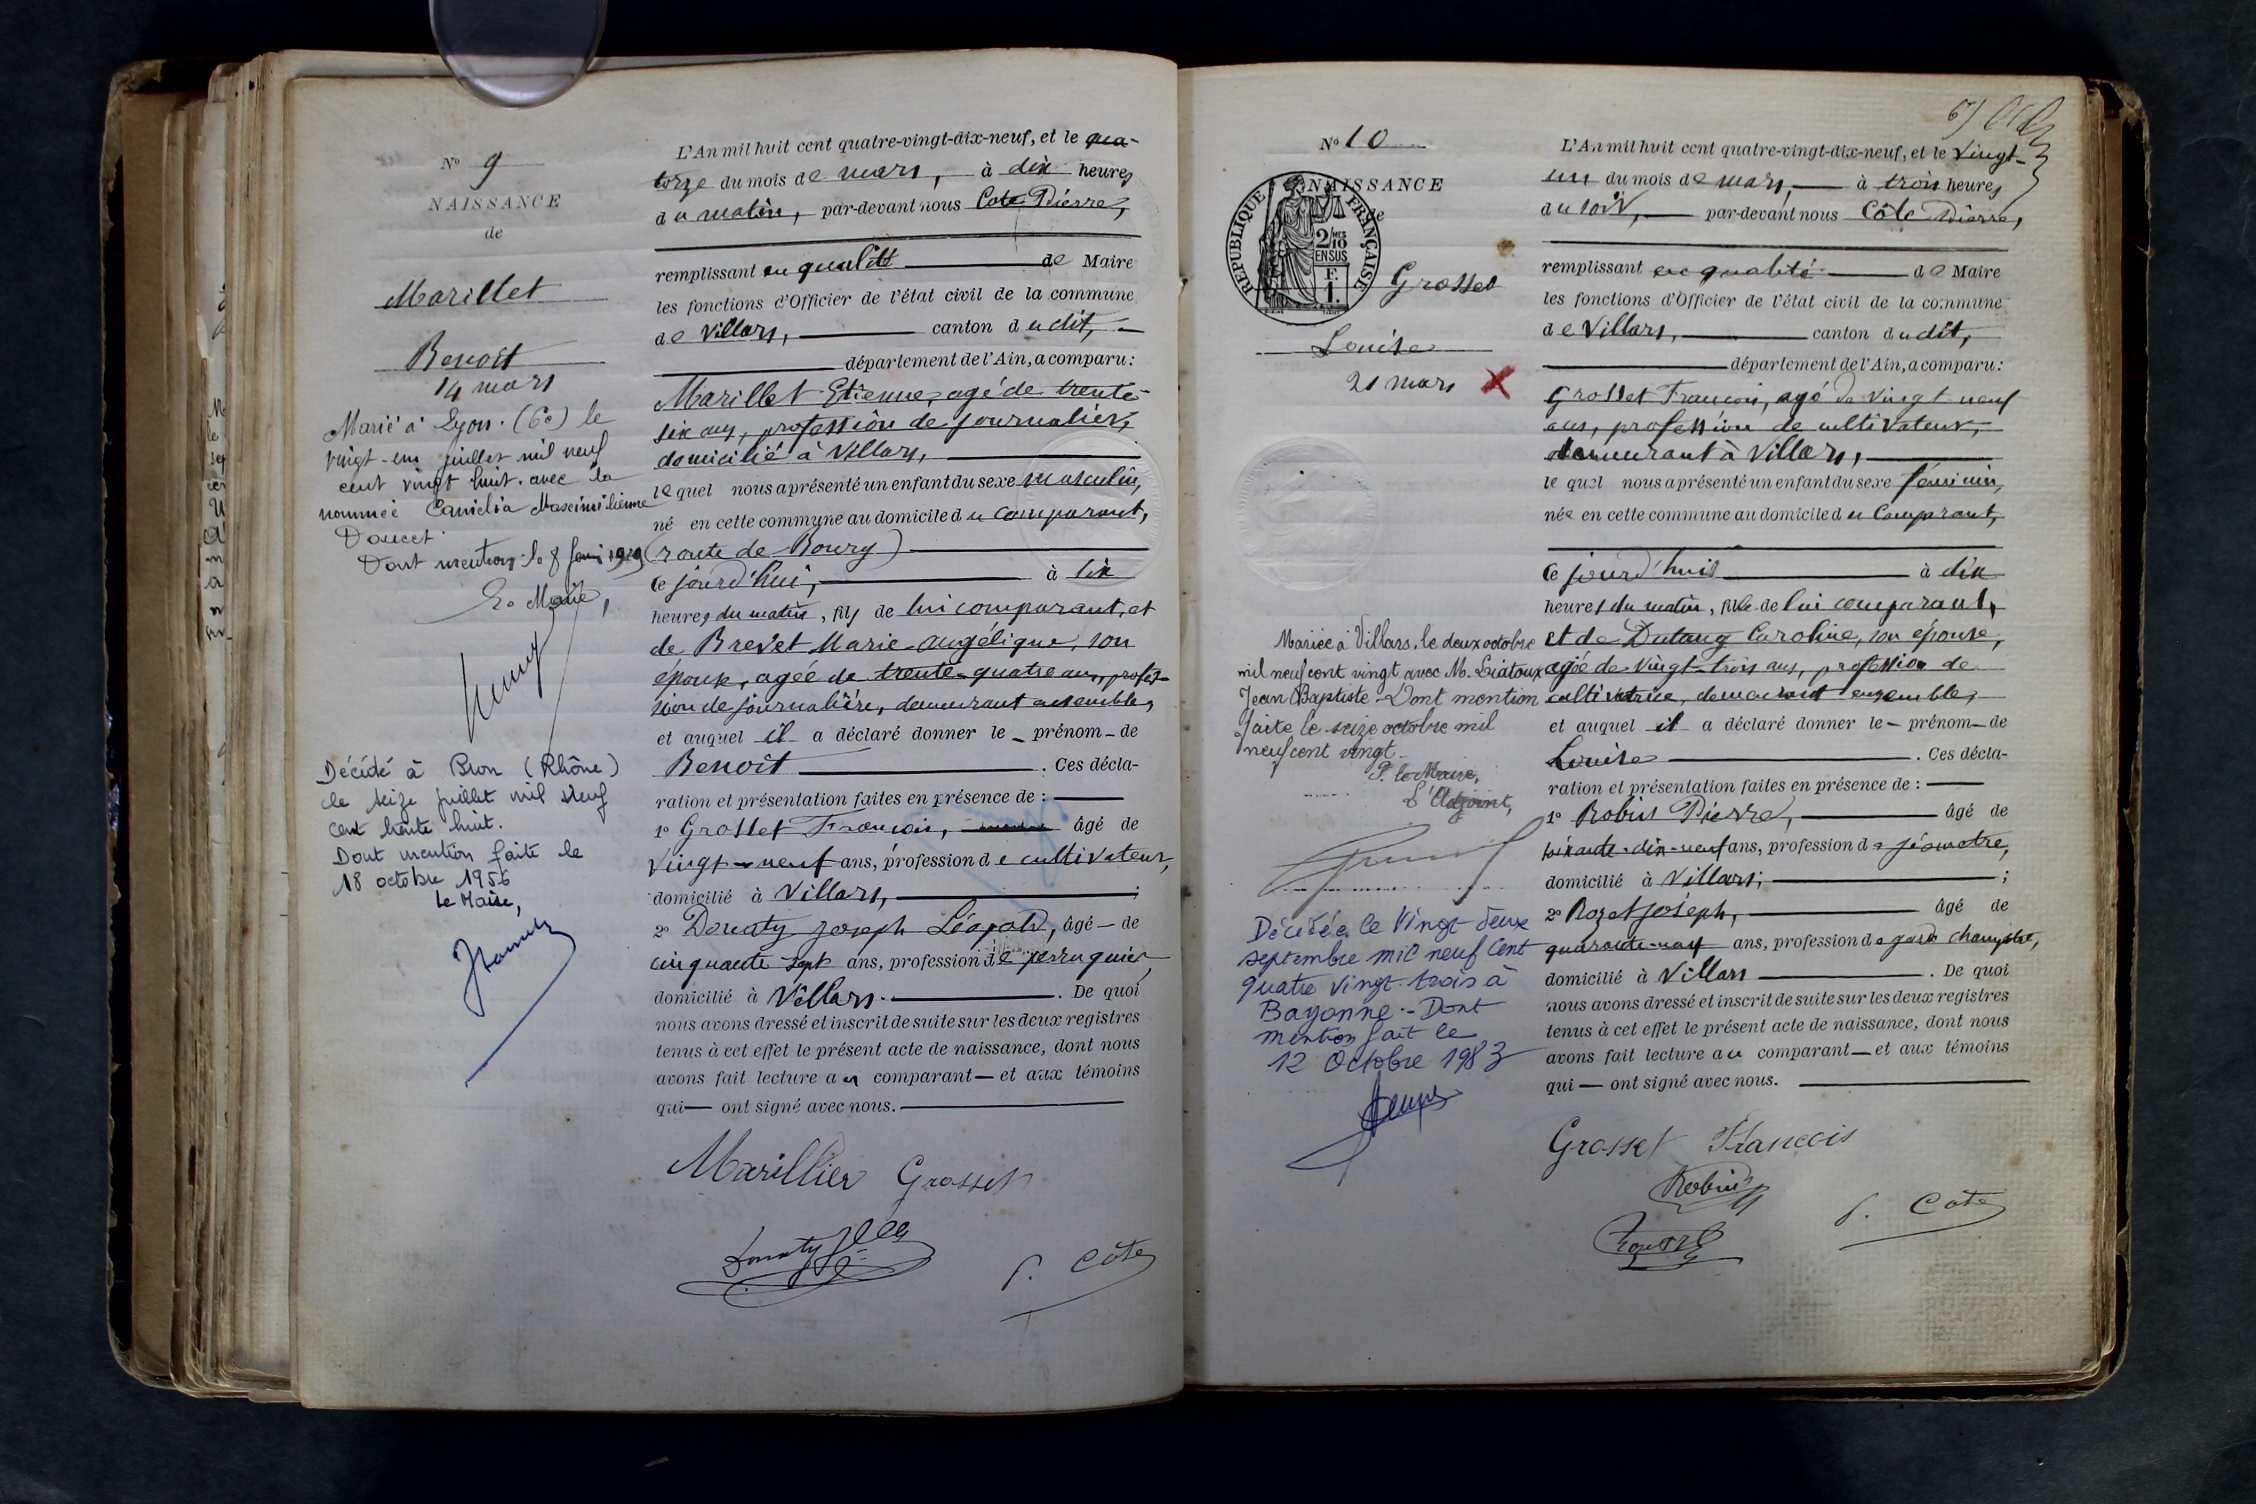 N° 9
NAISSANCE
de
Marillet
Benoit
14 mars
Marié à Lyon (6e) le
vingt-un juillet mil neuf
cent vingt huit avec la
nommée Camélia Maximilienne
Doucet
Dont mention le 8
Le Maire,
Décédé à Bron (Rhône)
le seize juillet mil neuf
cent trente huit.
Dont mention faite le
18 octobre 1956
Le Maire,
L'An mil huit cent quatre-vingt-dix-neuf, et le qua-
torze du mois de mars, à dix heures
du matin, par-devant nous Cote Pierre,
remplissant en qualité de Maire
les fonctions d'Officier de l'état civil de la commune
de Villars, canton dudit,
département de l'Ain, a comparu :
Marillet Etienne, agé de trente-
six ans, profession de journalier,
domicilié à Villars,
lequel nous a présenté un enfant du sexe masculin,
né en cette commune au domicile du comparant,
(route de Bourg)
ce jourd'hui, à six
heures du matin, fils de lui comparant, et
de Brevet Marie-Angélique, son
épouse, agée de trente-quatre ans, profes-
sion de journalière, demeurant ensemble,
et auquel il a déclaré donner le prénom de
Benoit . Ces décla-
ration et présentation faites en présence de :
1° Grosset François, âgé de
vingt-neuf ans, profession de cultivateur,
domicilié à Villars, ;
2° Donaty Joseph Léopold, âgé de
cinquante sept ans, profession de perruquier
domicilié à Villars. . De quoi
nous avons dressé et inscrit de suite sur les deux registres
tenus à cet effet le présent acte de naissance, dont nous
avons fait lecture au comparant et aux témoins
qui ont signé avec nous.
Marillier Grosset
Donaty
P. Côte
N° 10
NAISSANCE
de
RÉPUBLIQUE FRANÇAISE
2/10 MES
EN SUS
F.
1.
Grosset
Louise
21 mars X
Mariée à Villars, le deux octobre
mil neuf cent vingt avec M. Liatoux
Jean Baptiste - Dont mention
faite le seize octobre mil
neuf cent vingt
P. le Maire,
L'Adjoint,
Décédée le Vingt deux
septembre mil neuf cent
quatre vingt trois à
Bayonne.- Dont
mention fait le
12 Octobre 1983
L'An mil huit cent quatre-vingt-dix-neuf, et le vingt-
un du mois de mars, à trois heures
du soir, par-devant nous Côte Pierre,
remplissant en qualité de Maire
les fonctions d'Officier de l'état civil de la commune
de Villars, canton dudit,
département de l'Ain, a comparu :
Grosset François, agé de vingt neuf
ans, profession de cultivateur,
demeurant à Villars,
lequel nous a présenté un enfant du sexe féminin,
née en cette commune au domicile du Comparant,
ce jourd'hui à dix
heures du matin, fille de lui comparant,
et de Dutang Caroline, son épouse,
agée de vingt-trois ans, profession de
cultivatrice, demeurant ensemble,
et auquel il a déclaré donner le prénom de
Louise . Ces décla-
ration et présentation faites en présence de :
1° Robin Pierre, âgé de
soixante-dix-neuf ans, profession de géomètre,
domicilié à Villars; ;
2° Rozet Joseph, âgé de
quarante-neuf ans, profession de garde champêtre,
domicilié à Villars . De quoi
nous avons dressé et inscrit de suite sur les deux registres
tenus à cet effet le présent acte de naissance, dont nous
avons fait lecture au comparant et aux témoins
qui ont signé avec nous.
Grosset Francois
Robin
P. Côte